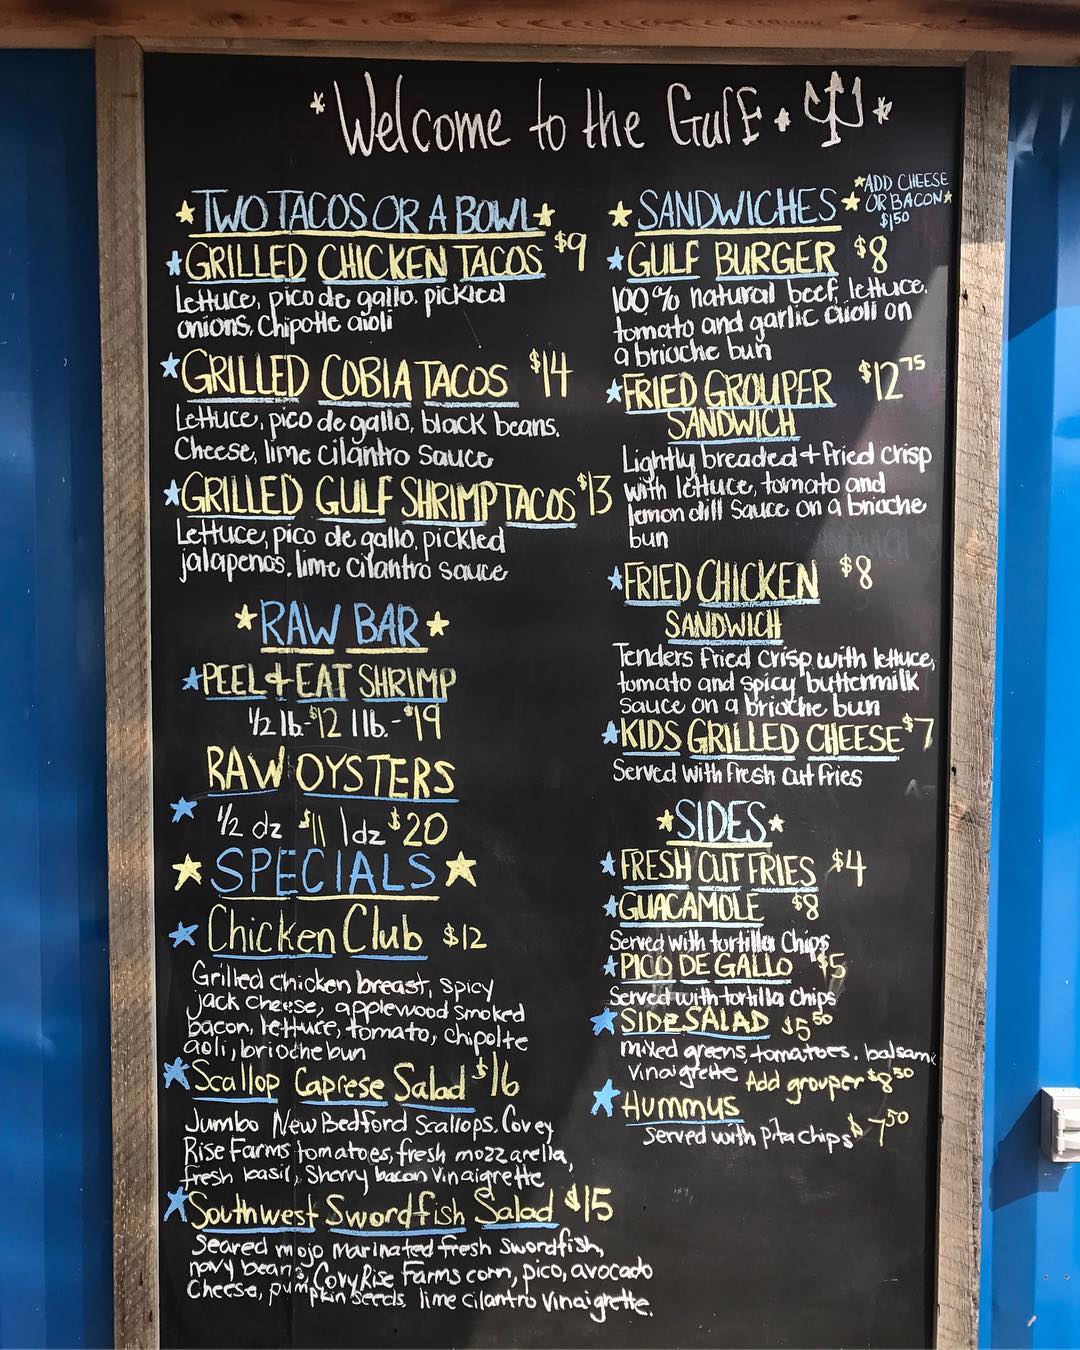 *Welcome to the Gulf*
TWO TACOS OR A BOWL
GRILLED CHICKEN TACOS $9
Lettuce, pico de gallo, pickled
onions, Chipotle aioli
GRILLED COBIA TACOS $14
Lettuce, pico de gallo, black beans,
Cheese, lime cilantro sauce
GRILLED GULF SHRIMP TACOS $13
Lettuce, pico de gallo, pickled
jalapenos, lime cilantro sauce
RAW BAR
PEEL + EAT SHRIMP
1/2 lb-$12 1 lb.-$19
RAW OYSTERS
1/2 dz $11 1dz $20
SPECIALS
Chicken Club $12
Grilled chicken breast, spicy
jack cheese, applewood smoked
bacon, lettuce, tomato, chipolte
aoli, brioche bun
Scallop Caprese Salad $16
Jumbo New Bedford Scallops, Covey
Rise Farms tomatoes, fresh mozzarella,
fresh basil, Sherry bacon Vinaigrette
Southwest Swordfish Salad $15
Seared mojo marinated fresh swordfish,
navy beans, Covy Rise Farms corn, pico, avocado
Cheese, pumpkin seeds, lime cilantro Vinaigrette.
SANDWICHES
*ADD CHEESE
OR BACON*
$1.50
GULF BURGER $8
100% natural beef, lettuce,
tomato and garlic aioli on
a brioche bun
FRIED GROUPER $12.75
SANDWICH
Lightly breaded + fried crisp
with lettuce, tomato and
lemon dill sauce on a brioche
bun
FRIED CHICKEN $8
SANDWICH
Tenders fried crisp with lettuce,
tomato and spicy buttermilk
sauce on a brioche bun
KIDS GRILLED CHEESE $7
Served with fresh cut fries
*SIDES*
FRESH CUT FRIES $4
GUACAMOLE $8
Served with tortilla Chips
PICO DE GALLO $5
Served with tortilla Chips
SIDE SALAD $5.50
mixed greens, tomatoes, balsamic
vinaigrette Add grouper $8.50
Hummus
Served with Pita chips $7.50